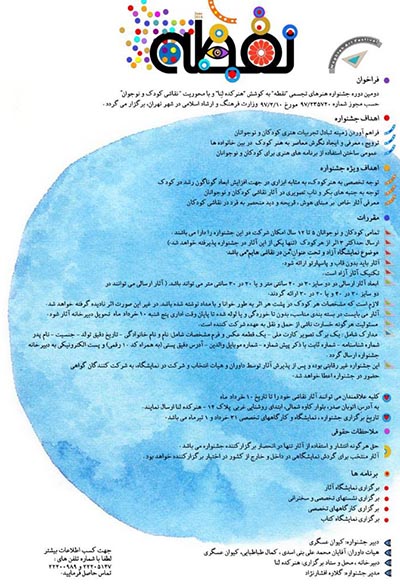 نقطه
فراخوان
دومین دوره جشنواره هنرهای تجسمی "نقطه" به کوشش "هنرکده لِنا" و با محوریت "نقاشی کودک و نوجوان"
حسب مجوز شماره ۹۷/۲۳۵۷۲۰ مورخ ۹۷/۲/۱۰ وزارت فرهنگ و ارشاد اسلامی در شهر تهران، برگزار می گردد.
اهداف جشنواره
فراهم آوردن زمینه تبادل تجربیات هنری کودکان و نوجوانان
ترویج ، معرفی و ایجاد نگرش معاصر به هنر کودک در بین خانواده ها
عمومی ساختن استفاده از برنامه های هنری برای کودکان و نوجوانان
اهداف ویژه جشنواره
توجه تخصصی به هنر کودک، به مثابه ابزاری در جهت افزایش ابعاد گوناگون رشد در کودک
توجه به جنبه های بکر و ناب تصویری در آثار نقاشی کودکان و نوجوانان
معرفی آثار خاص بر مبنای هوش ، قریحه و دید منحصر به فرد در نقاشی کودکان
مقررات
تمامی کودکان و نوجوانان ۵ تا ۱۲ سال امکان شرکت در این جشنواره را دارا می باشند.
ارسال حداکثر ۳ اثر از هر کودک (تنها یکی از این آثار در جشنواره پذیرفته خواهد شد.)
موضوع نمایشگاه آزاد و تحت عنوان من در نقاشی هایم می باشد
آثار باید بدون قاب و پاسپارتو ارائه شود.
تکنیک آثار آزاد است.
ابعاد آثار ارسالی در دو سایز ۳۰ در ۴۰ سانتی متر و یا ۲۰ در ۳۰ سانتی متر می تواند باشد. (آثار ارسالی می توانند در
دو سایز ۳۰ در ۴۰ و یا ۲۰ در ۳۰ ارائه گردند.
لازم است که مشخصات هر کودک در پشت هر اثر به طور خوانا و با مداد نوشته شده باشد. در غیر این صورت اثر نادیده گرفته خواهد شد.
آثار می بایست در بسته بندی مناسب، بدون تا خوردگی و یا لوله شده تا پایان وقت اداری پنج شنبه ۱۰ خرداد ماه تحویل دبیرخانه آثار شود.
مسئولیت هرگونه خسارت ناشی از حمل و نقل به عهده شرکت کننده است.
مدارک شامل: یک برگ تصویر کارت ملی - یک قطعه عکس و فرم مشخصات شامل نام و نام خانوادگی - تاریخ دقیق تولد - جنسیت - نام پدر
شماره شناسنامه - شماره ثابت با ذکر پیش شماره - شماره موبایل والدین - آدرس دقیق پستی (به همراه کد ۱۰ رقمی) و پست الکترونیکی به دبیرخانه
جشنواره ارسال گردد.
این جشنواره غیر رقابتی بوده و پس از پذیرش آثار توسط داوران و هیات انتخاب و شرکت در نمایشگاه، به شرکت کنندگان گواهی
حضور در جشنواره اعطا خواهد شد.
کلیه علاقمندان می توانند آثار نقاشی خود را تا تاریخ ۱۰ خرداد ماه
به آدرس: اتوبان صدر، بلوار کاوه شمالی، ابتدای روشنایی غربی پلاک ۱۲ - هنرکده لنا ارسال نمایند.
تاریخ برگزاری جشنواره ، نمایشگاه و کارگاههای تخصصی ۳۱ خرداد و ۱ تیرماه می باشد.
ملاحظات حقوقی
حق هرگونه انتشار و استفاده از آثار تنها در انحصار برگزارکننده جشنواره می باشد.
آثار منتخب برای گردش نمایشگاهی در داخل و خارج از کشور در اختیار برگزارکننده خواهد بود.
برنامه ها
برگزاری نمایشگاه آثار
برگزاری نشستهای تخصصی و سخنرانی
برگزاری کارگاههای تخصصی
برگزاری نمایشگاه کتاب
دبیر جشنواره: کیوان عسگری
هیات داوران: آقایان محمد علی بنی اسدی ، کمال طباطبایی ، کیوان عسگری
دبیرخانه ، محل و ستاد برگزاری: هنرکده لنا
مدیر جشنواره: گلاره افشارنژاد
جهت کسب اطلاعات بیشتر
لطفا با شماره تلفن های:
۲۲۲۰۵۱۲۷ و ۲۲۲۰۰۹۸۹
تماس حاصل فرمایید.